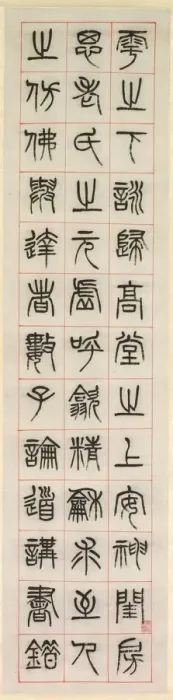 雩之下詠歸高堂之上安神閨房
思老氏之元虛呼歙精龢求至人
之仿佛與達者數子論道講書錯